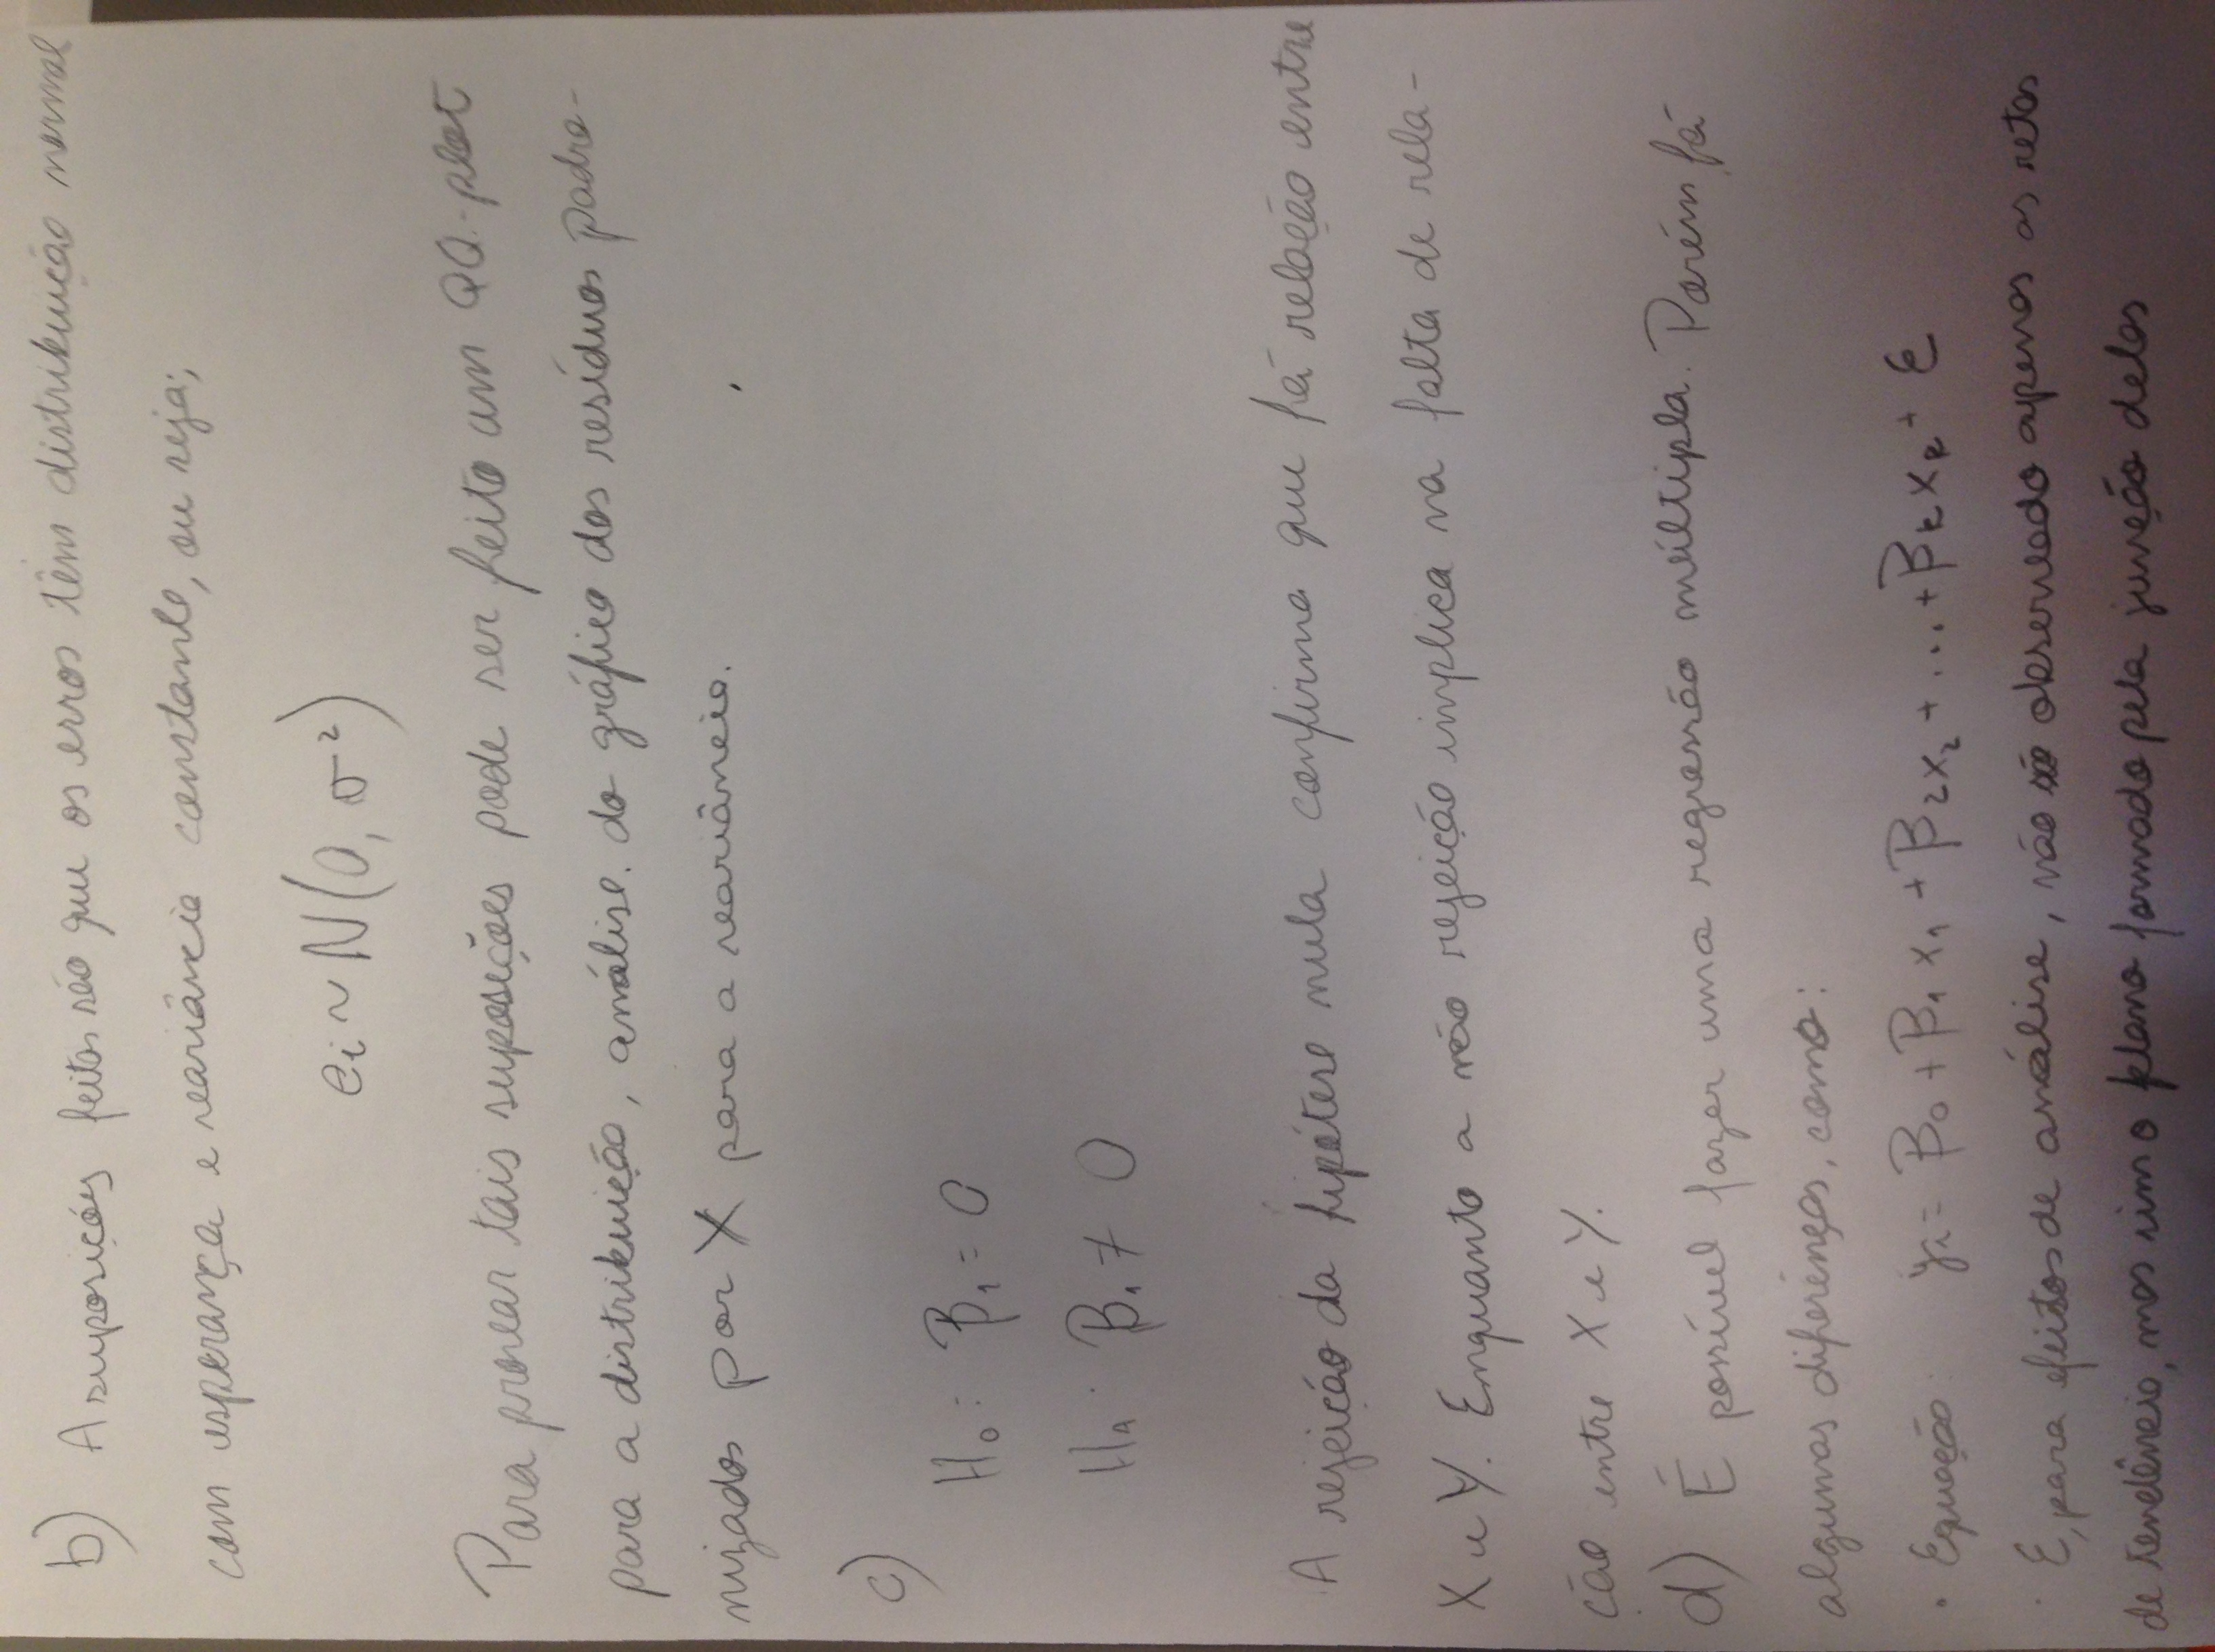 b) A suposições feitas são que os erros têm distribuição normal
com esperança e variância constante, ou seja;
ei ~ N(0, σ²)
Para provar tais suposições pode ser feito um QQ-plot
para a distribuição, análise. do gráfico dos resíduos padro-
nizados por X para a variância.
c)
H₀: β₁ = 0
H₁: β₁ ≠ 0
A rejeição da hipótese nula confirma que há relação entre
X e Y. Enquanto a não rejeição implica na falta de rela-
ção entre X e Y.
d) É possível fazer uma regressão múltipla. Porém há
algumas diferenças, como:
• Equação: yi = β₀ + β₁x₁ + β₂x₂ + ... + βₖxₖ + ε
• E, para efeitos de análise, não observado apenas as retas
de tendência, mas sim o plano formado pela junção delas